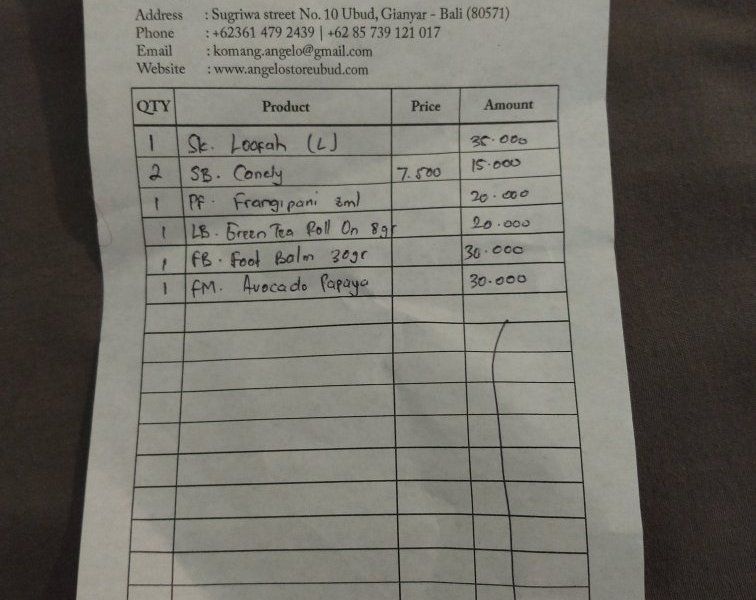 Address : Sugriwa street No. 10 Ubud, Gianyar - Bali (80571)
Phone : +62361 479 2439 | +62 85 739 121 017
Email : komang.angelo@gmail.com
Website : www.angelostoreubud.com
QTY Product Price Amount
1 Sk. Loofah (L) 35.000
2 SB. Conely 7.500 15.000
1 PF. Frangipani 2ml 20.000
1 LB. Green Tea Roll On 8gr 20.000
1 FB. Foot Balm 30gr 30.000
1 FM. Avocado Papaya 30.000